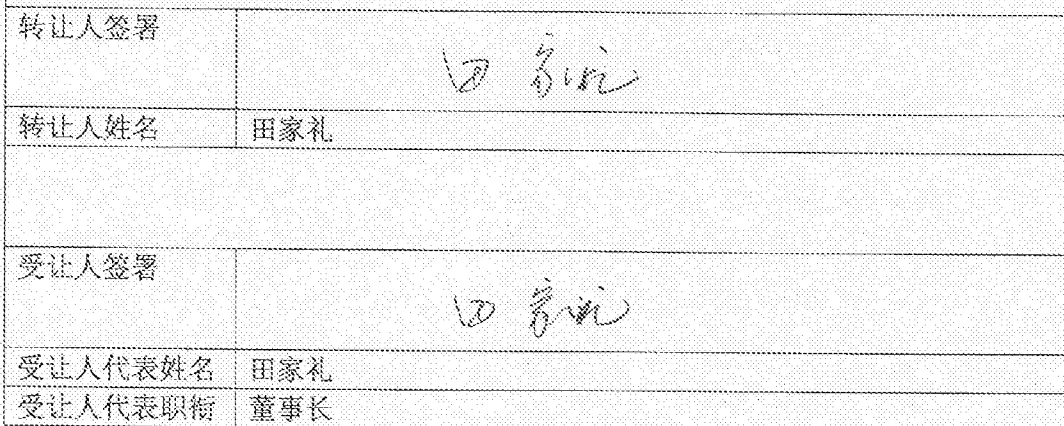 转让人签署
田家礼
转让人姓名 田家礼
受让人签署
田家礼
受让人代表姓名 田家礼
受让人代表职衔 董事长